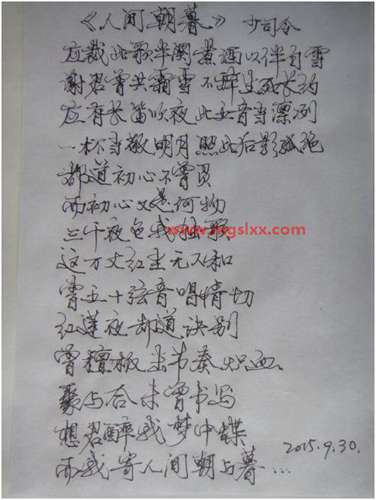 《人间朝暮》 少司令
应裁此歌半阕煮酒以伴白雪
谢君曾共霜雪 不醉生死长约
应有长笛吹夜 此去音书漂冽
一杯当敬明月 照此后影孤绝
都道初心不曾
而初心又是何物
三千夜色我独歌
这万丈红尘无人和
曾五十弦音唱情切
红莲夜却道诀别
曾檀板未节奏炽血
聚与合未曾书写
想君醉我梦中蝶
而我寄人间朝与暮...
2015.9.30.
www.mgslxx.com